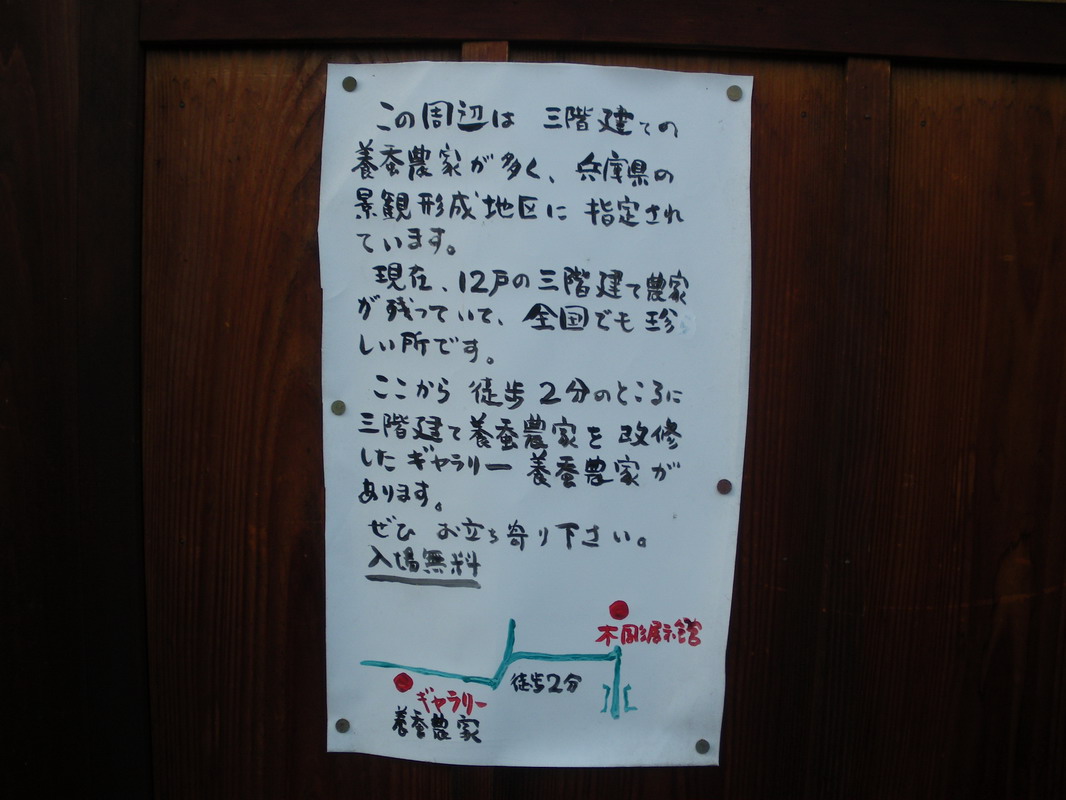 この周辺は 三階建ての
養蚕農家が多く、兵庫県の
景観形成地区に 指定され
ています。
現在、12戸の三階建て農家
が残っていて、全国でも珍
しい所です。
ここから 徒歩2分のところに
三階建て養蚕農家を改修
したギャラリー養蚕農家が
あります。
ぜひ お立ち寄り下さい。
入場無料
木彫展示館
徒歩2分
ギャラリー
養蚕農家